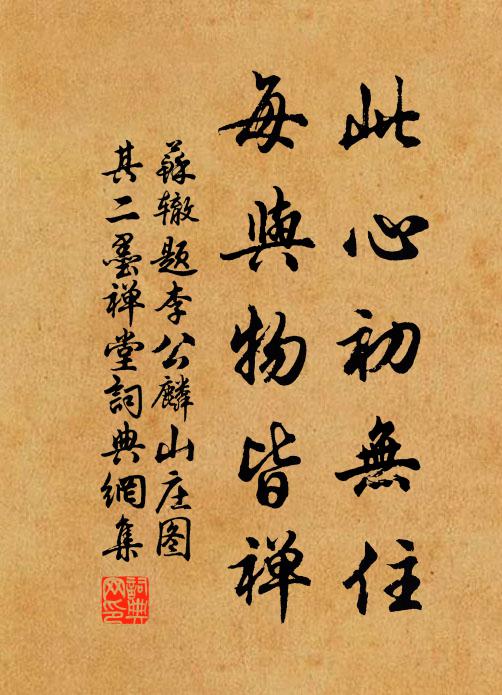 此心初無住
每與物皆禅
蘇辙题李公麟山庄图
其二墨禅堂詞典網集
詞典網印